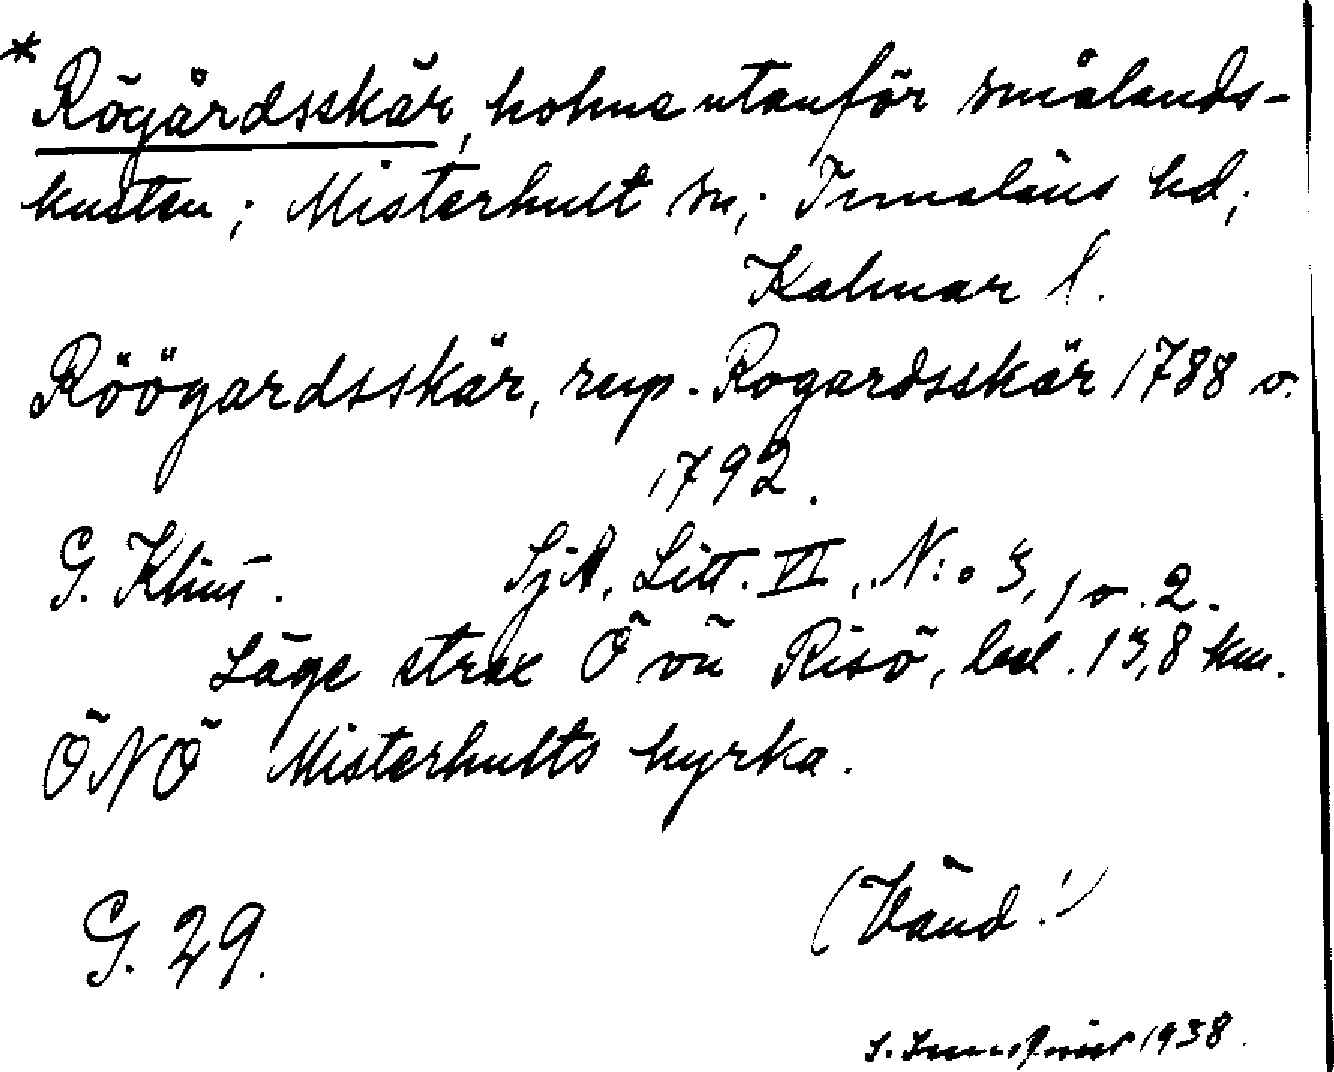 * Rögårdsskär, holme utanför smålands-
kusten; Misterhult sn; Tunaläns hd;
Kalmar l.
Röögardsskär, resp. Rogardsskär 1788 o.
1792.
G. Klint. SjA, Litt. VI, N:o 3, 1 o. 2.
Läge strax Ö om Risö, bel. 13,8 km.
ÖNÖ Misterhults kyrka.
(Vänd!)
G. 29.
1938.